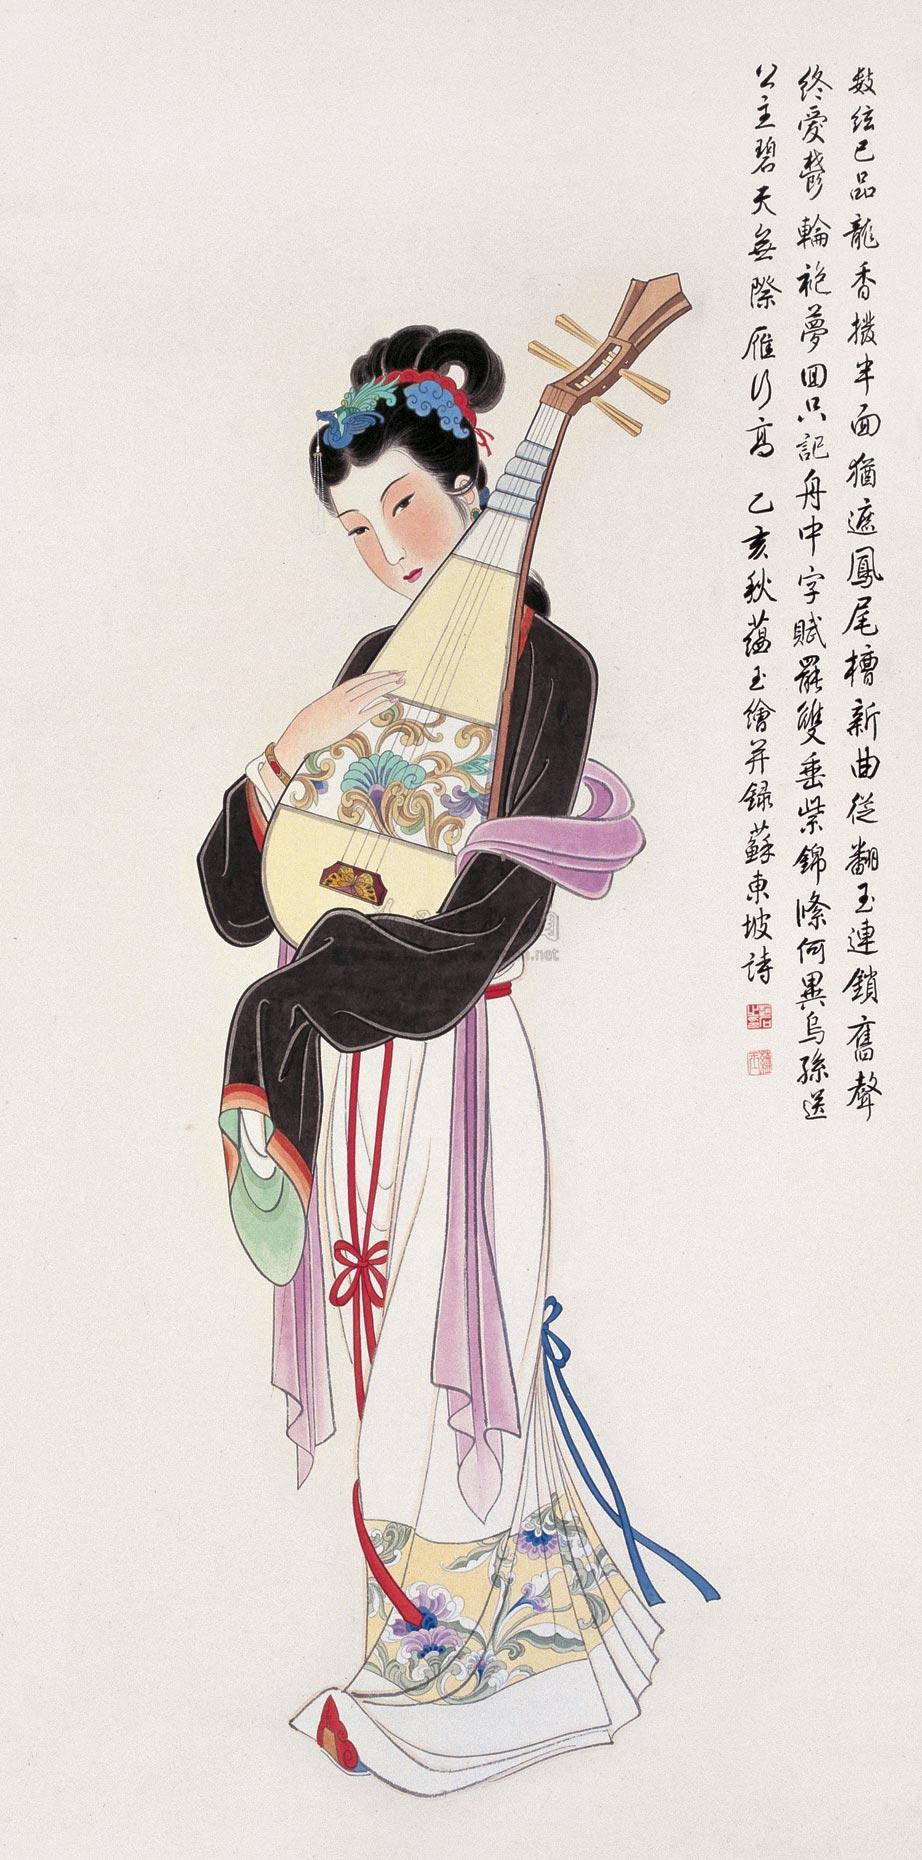 数絃已品龍香撥半面猶遮鳳尾槽新曲從翻玉連鎖舊聲
終愛鬱輪袍夢回只記舟中字賦罷雙垂紫錦絛何異烏孫送
公主碧天無際雁行高 乙亥秋蘊玉繪并録蘇東坡詩